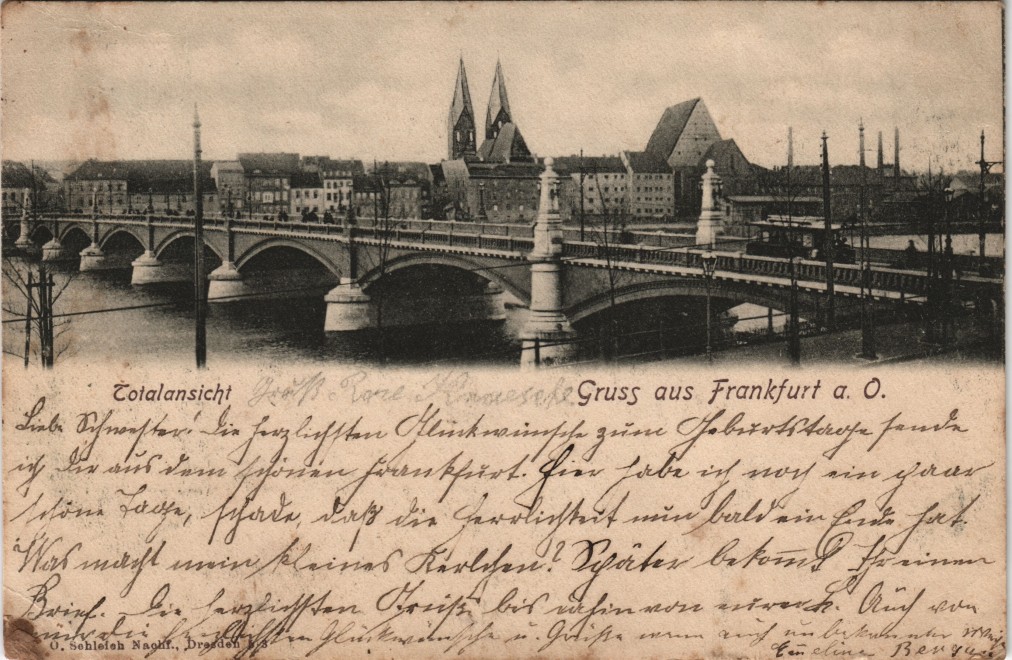 Totalansicht Gruß Gruss aus Frankfurt a. O.
Liebe Schwester! Die herzlichsten Glückwünsche zum Geburtstage sende
ich Dir aus dem schönen Frankfurt. Hier habe ich noch ein paar
schöne Tage, schade, daß die Herrlichkeit nun bald ein Ende hat.
Was macht mein kleines Kerlchen? Später bekommst Ihr einen
Brief. Die herzlichsten Grüße bis dahin von eurer K. Auch von
die herzlichsten Glückwünsche u. Grüße wenn auch unbekannter
O. Schleich Nachf., Dresden